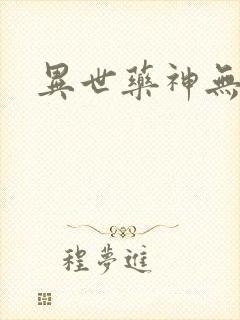 異世藥神無
程夢進